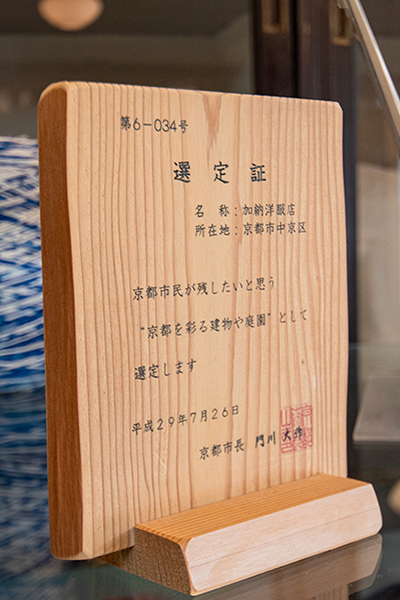 第6－034号
選定証
名称：加納洋服店
所在地：京都市中京区
京都市民が残したいと思う
“京都を彩る建物や庭園”として
選定します
平成29年7月26日
京都市長 門川大作